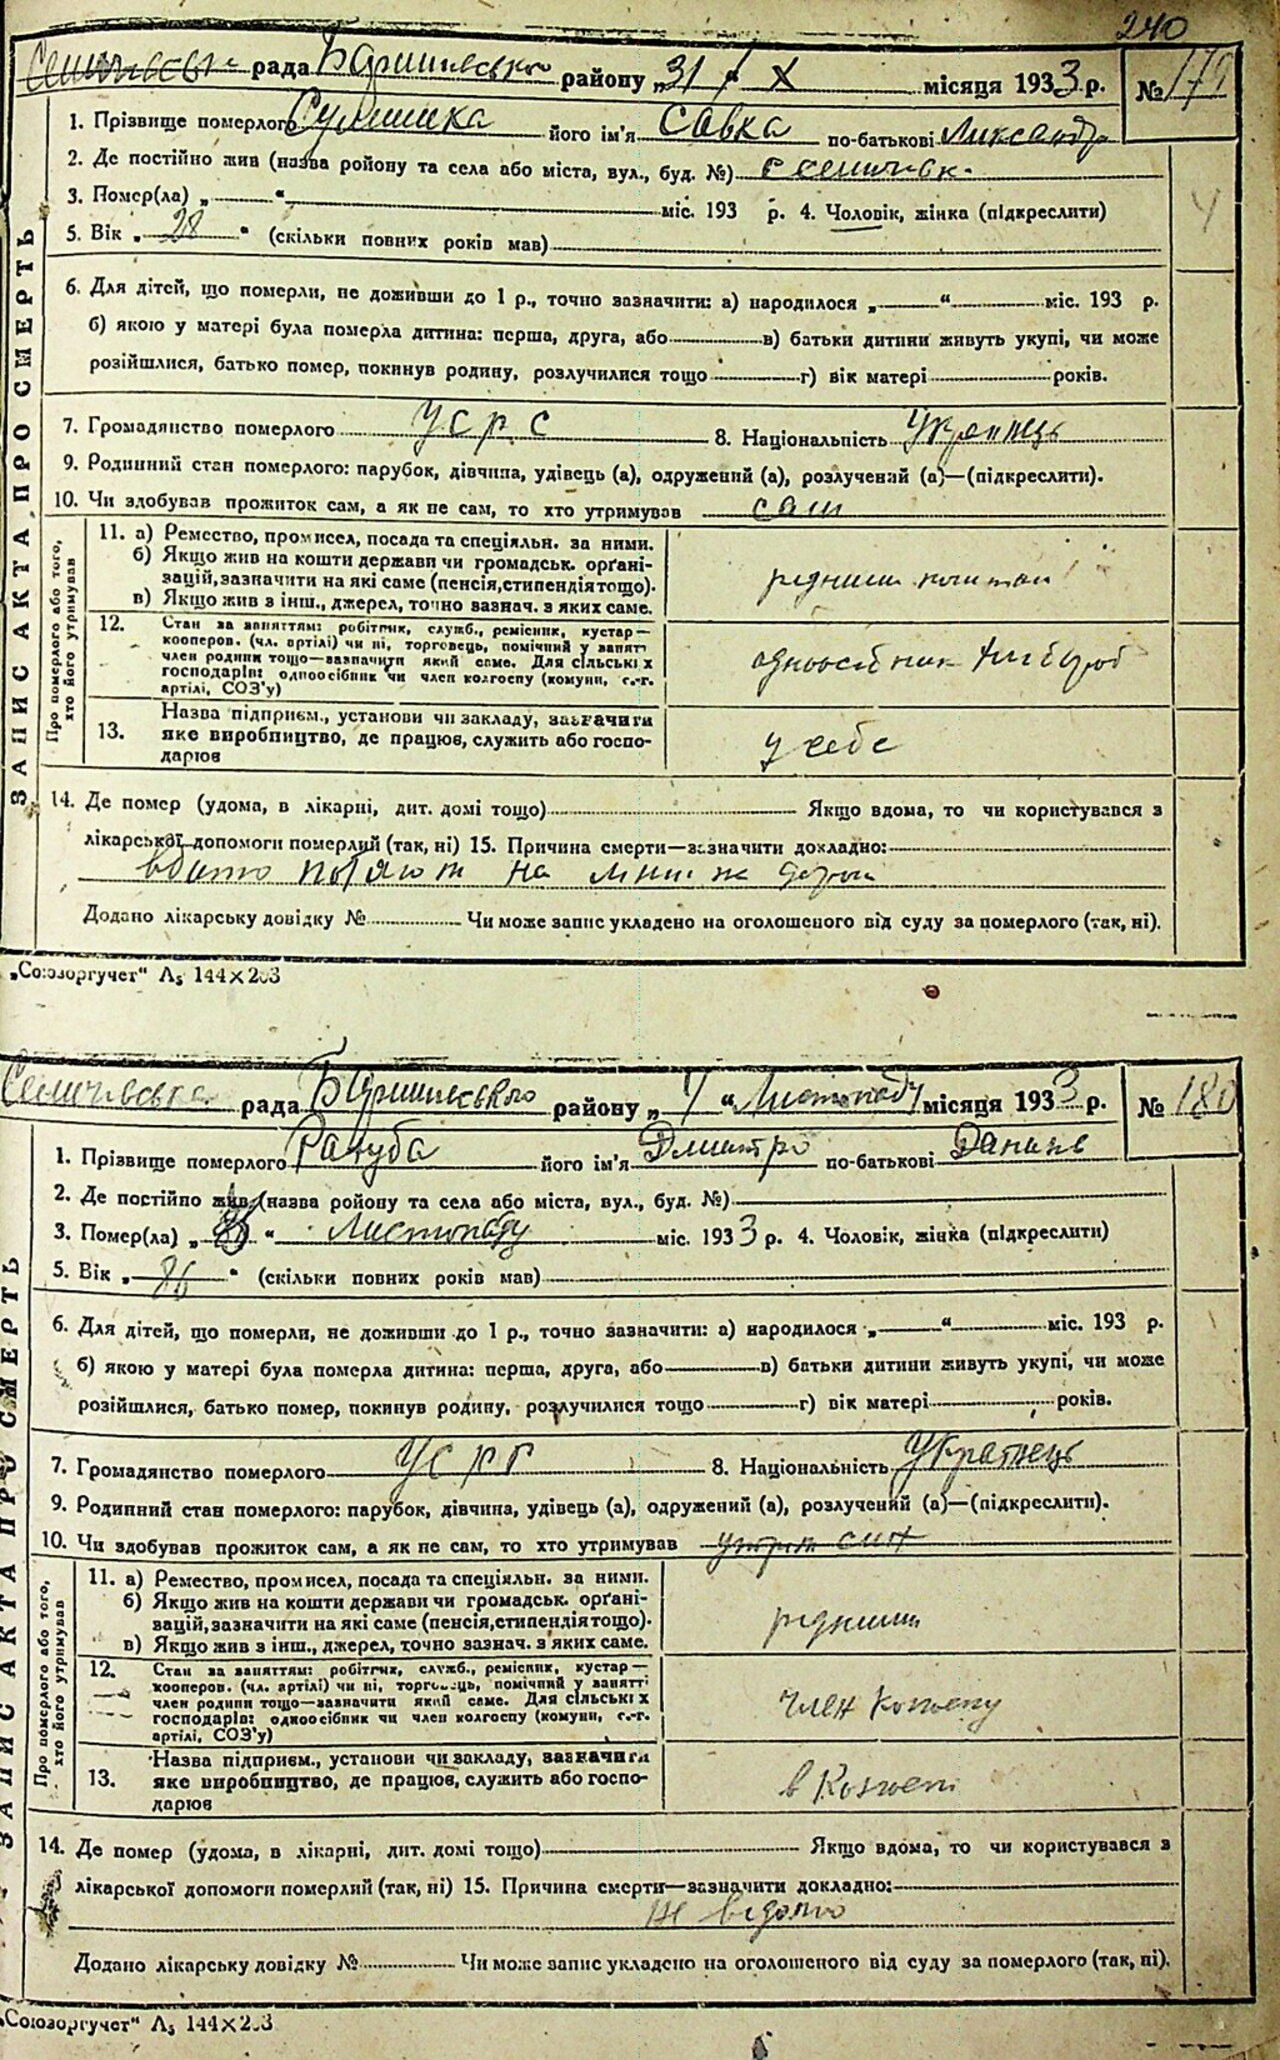 240
Семичівська рада Баришивського району „31“ X місяця 1933 р. № 179
1. Прізвище померлого його ім'я Савка по-батькові Лександр
2. Де постійно жив (назва ройону та села або міста, вул., буд. №)
3. Помер(ла) „ “ міс. 193 р. 4. Чоловік, жінка (підкреслити)
5. Вік „ 28 “ (скільки повних років мав)
6. Для дітей, що померли, не доживши до 1 р., точно зазначити: а) народилося „ “ міс. 193 р.
б) якою у матері була померла дитина: перша, друга, або в) батьки дитини живуть укупі, чи може
розійшлися, батько помер, покинув родину, розлучилися тощо г) вік матері років.
7. Громадянство померлого УСРС 8. Національність Українець
9. Родинний стан померлого: парубок, дівчина, удівець (а), одружений (а), розлучений (а)—(підкреслити).
10. Чи здобував прожиток сам, а як не сам, то хто утримував сам
ЗАПИС АКТА ПРО СМЕРТЬ
Про померлого або того, хто його утримував
11. а) Ремество, промисел, посада та спеціяльн. за ними.
б) Якщо жив на кошти держави чи громадськ. орґані-
зацій, зазначити на які саме (пенсія, стипендія тощо).
в) Якщо жив з інш., джерел, точно зазнач. з яких саме.
12. Стан за заняттям: робітник, служб., ремісник, кустар—
кооперов. (чл. артілі) чи ні, торговець, помічний у занятті
член родини тощо—зазначити який саме. Для сільських
господарів: одноосібник чи член колгоспу (комуни, с.-г.
артілі, СОЗ'у)
одноосібник
13. Назва підприєм., установи чи закладу, зазначити
яке виробництво, де працює, служить або госпо-
дарює
у себе
14. Де помер (удома, в лікарні, дит. домі тощо) Якщо вдома, то чи користувався з
лікарської допомоги померлий (так, ні) 15. Причина смерти—зазначити докладно:
вбито на
Додано лікарську довідку № Чи може запис укладено на оголошеного від суду за померлого (так, ні).
„Союзоргучет“ А₅ 144×203
Семичівська рада Баришивського району „ “ Листопаду місяця 1933 р. № 180
1. Прізвище померлого його ім'я Дмитро по-батькові Данилів
2. Де постійно жив (назва ройону та села або міста, вул., буд. №)
3. Помер(ла) „ “ Листопаду міс. 1933 р. 4. Чоловік, жінка (підкреслити)
5. Вік „ 86 “ (скільки повних років мав)
6. Для дітей, що померли, не доживши до 1 р., точно зазначити: а) народилося „ “ міс. 193 р.
б) якою у матері була померла дитина: перша, друга, або в) батьки дитини живуть укупі, чи може
розійшлися, батько помер, покинув родину, розлучилися тощо г) вік матері років.
7. Громадянство померлого УСРР 8. Національність Українець
9. Родинний стан померлого: парубок, дівчина, удівець (а), одружений (а), розлучений (а)—(підкреслити).
10. Чи здобував прожиток сам, а як не сам, то хто утримував син
ЗАПИС АКТА ПРО СМЕРТЬ
Про померлого або того, хто його утримував
11. а) Ремество, промисел, посада та спеціяльн. за ними.
б) Якщо жив на кошти держави чи громадськ. орґані-
зацій, зазначити на які саме (пенсія, стипендія тощо).
в) Якщо жив з інш., джерел, точно зазнач. з яких саме.
12. Стан за заняттям: робітник, служб., ремісник, кустар—
кооперов. (чл. артілі) чи ні, торговець, помічний у занятті
член родини тощо—зазначити який саме. Для сільських
господарів: одноосібник чи член колгоспу (комуни, с.-г.
артілі, СОЗ'у)
член колгоспу
13. Назва підприєм., установи чи закладу, зазначити
яке виробництво, де працює, служить або госпо-
дарює
в колгоспі
14. Де помер (удома, в лікарні, дит. домі тощо) Якщо вдома, то чи користувався з
лікарської допомоги померлий (так, ні) 15. Причина смерти—зазначити докладно:
не відомо
Додано лікарську довідку № Чи може запис укладено на оголошеного від суду за померлого (так, ні).
„Союзоргучет“ А₅ 144×203